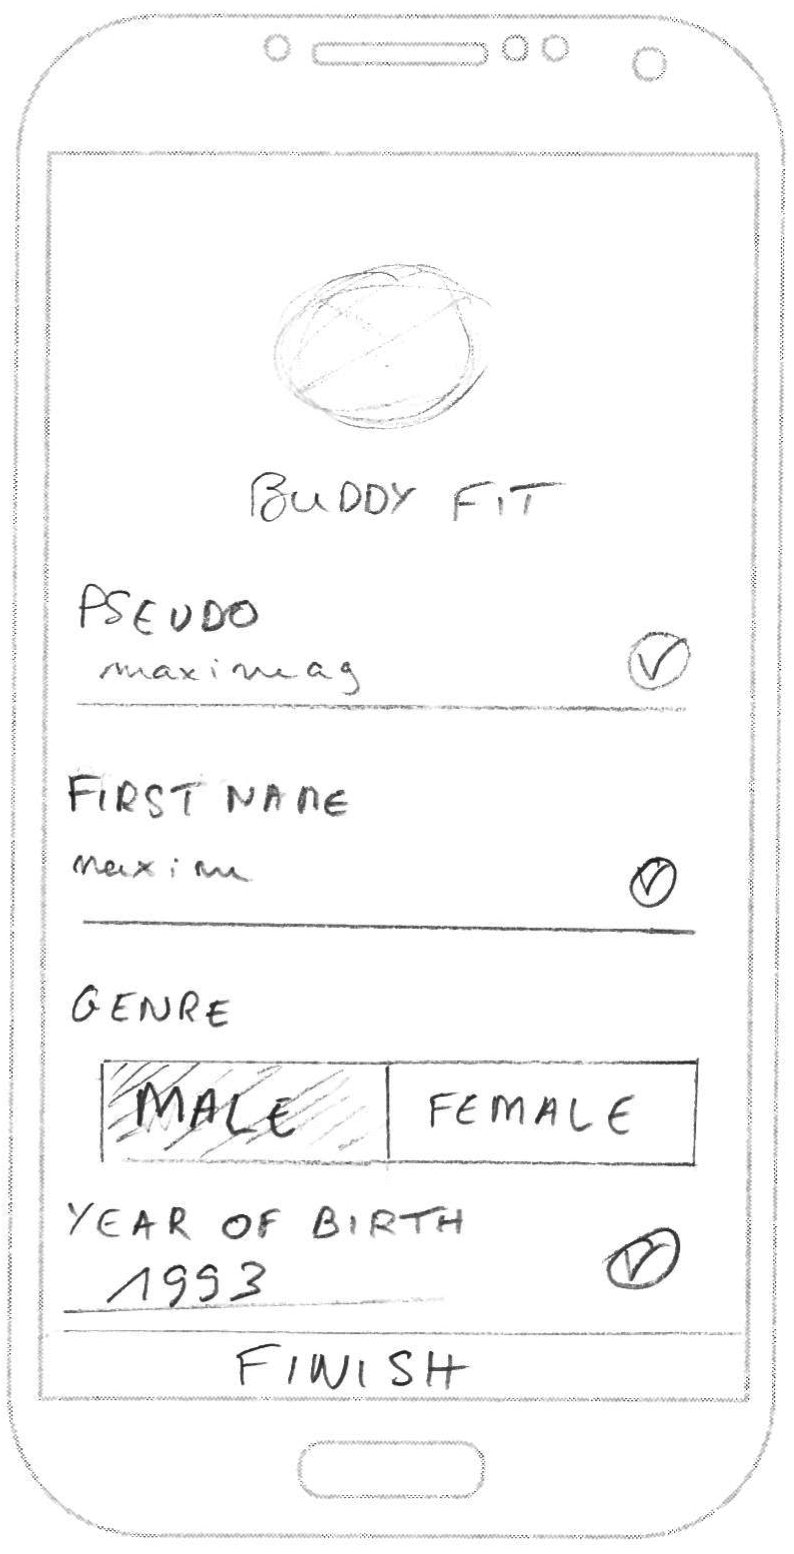 BUDDY FIT
PSEUDO
maximeag
FIRST NAME
maxime
GENRE
MALE FEMALE
YEAR OF BIRTH
1993
FINISH